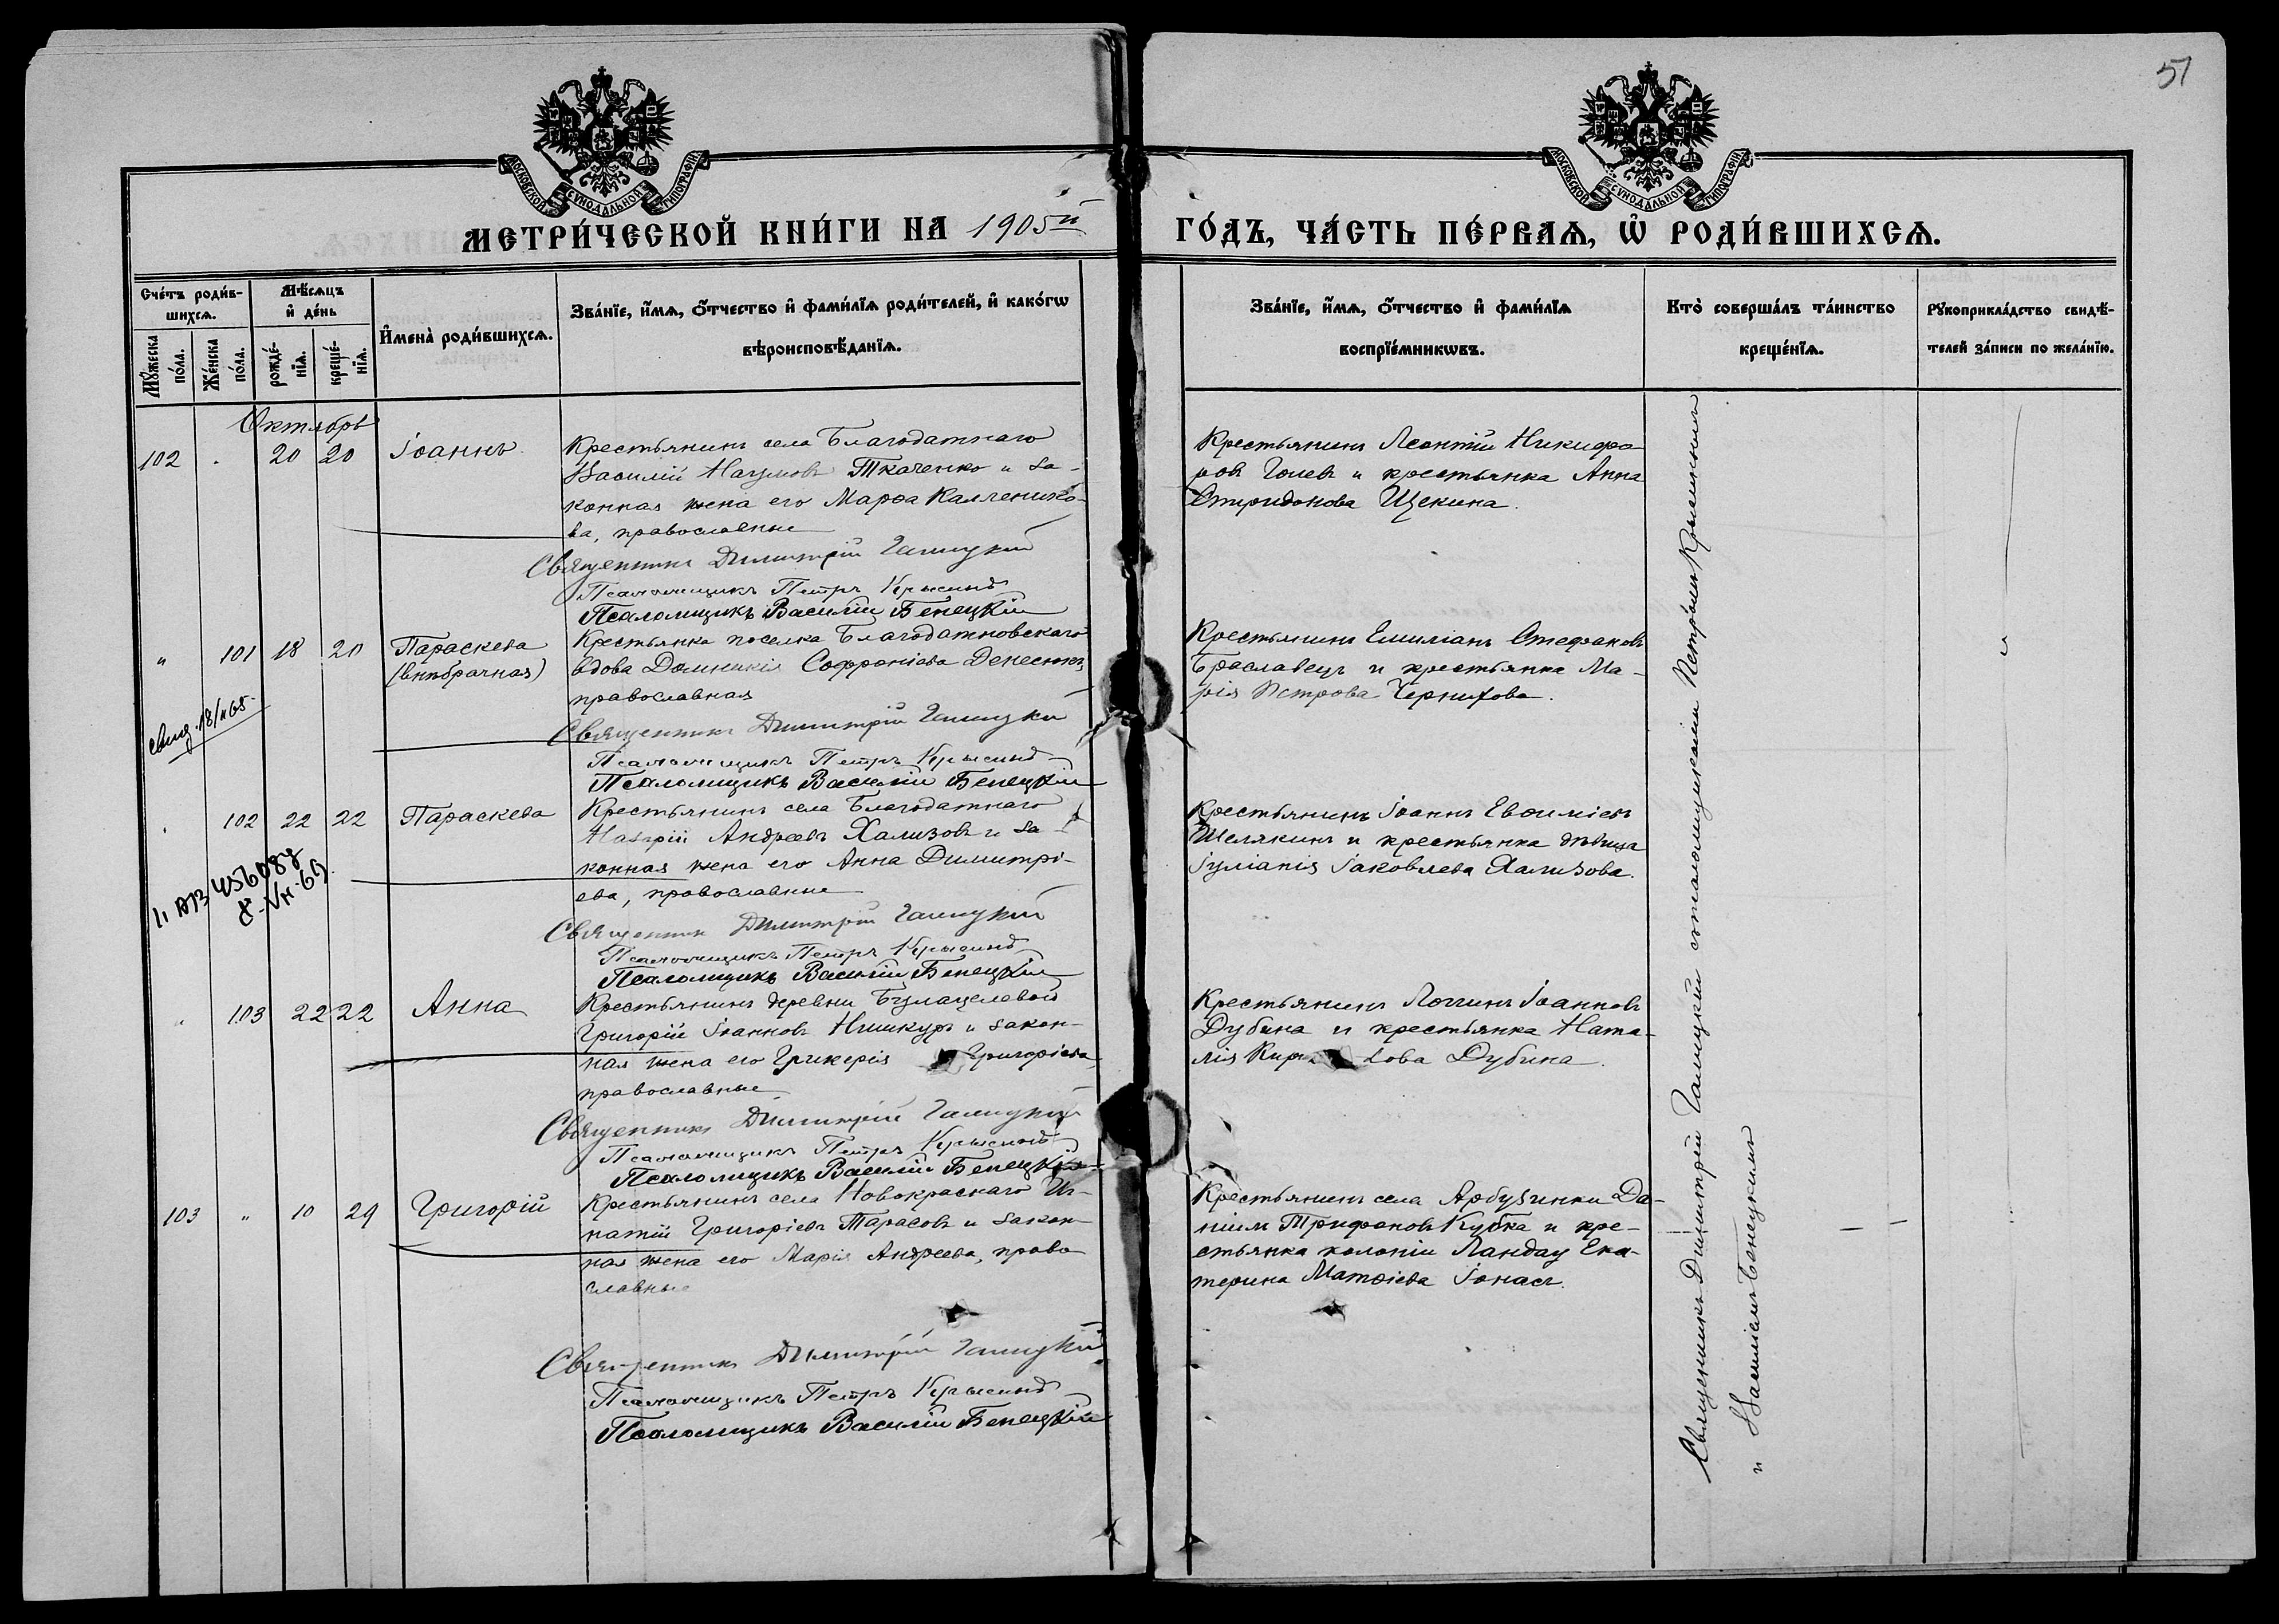 51
МОСКОВСКОЙ СѴНОДАЛЬНОЙ ТИПОГРАФІИ
МОСКОВСКОЙ СѴНОДАЛЬНОЙ ТИПОГРАФІИ
МЕТРИ́ЧЕСКОЙ КНИ́ГИ НА 1905й
ГО́ДЪ, ЧА́СТЬ ПЕ́РВАѦ, Ѡ҆ РОДИ́ВШИХСѦ.
Сче́тъ роди́в-
шихсѧ.
Мꙋ́жеска
по́ла.
Же́нска
по́ла.
Мѣ́сѧцъ
и҆ де́нь
рожде́-
нїѧ.
креще́-
нїѧ.
И҆мена̀ роди́вшихсѧ.
Зва́нїе, и҆́мѧ, ѻ҆́тчество и҆ фами́лїѧ роди́телей, и҆ како́гѡ
вѣроисповѣ́данїѧ.
Зва́нїе, и҆́мѧ, ѻ҆́тчество и҆ фами́лїѧ
воспрїе́мникѡвъ.
Кто̀ соверша́лъ та́инство
креще́нїѧ.
Рꙋкоприкла́дство свидѣ́-
телей за́писи по жела́нїю.
Октябрь
102 20 20 Іоаннъ
Крестьянинъ села Благодатнаго
Василій Наумовъ Ткаченко и за-
конная жена его Марѳа Калленико-
ва, православные
Священникъ Димитрій Галицкій
Псаломщикъ Петръ Крысинъ
Псаломщикъ Василій Бенецкій
Крестьянинъ Леонтій Никифо-
ровъ Гоцевъ и крестьянка Анна
Спиридонова Щекина.
" 101 18 20 Параскева
(внѣбрачная)
Крестьянка поселка Благодатновскаго
вдова Домникія Софроніева Денесюкъ,
православная
Священникъ Димитрій Галицкій
Псаломщикъ Петръ Крысинъ
Псаломщикъ Василій Бенецкій
Крестьянинъ Емиліанъ Стефановъ
Браславецъ и крестьянка Ма-
рія Петрова Чернихова.
102 22 22 Параскева
Крестьянинъ села Благодатнаго
Назарій Андреевъ Хализовъ и за-
конная жена его Анна Димитрі-
ева, православные
Священникъ Димитрій Галицкій
Псаломщикъ Петръ Крысинъ
Псаломщикъ Василій Бенецкій
Крестьянинъ Іоаннъ Евѳиміевъ
Шелякинъ и крестьянка дѣвица
Іуліанія Іаковлева Хализова.
103 22 22 Анна
Крестьянинъ деревни Булацелевой
Григорій Іоанновъ Нишкуръ и закон-
ная жена его Гликерія Григоріева,
православные
Священникъ Димитрій Галицкій
Псаломщикъ Петръ Крысинъ
Псаломщикъ Василій Бенецкій
Крестьянинъ Логгинъ Іоанновъ
Дубина и крестьянка Ната-
лія Дубина.
103 " 10 29 Григорій
Крестьянинъ села Новокраснаго Иг-
натій Григоріевъ Тарасовъ и закон-
ная жена его Марія Андреева, право
славные
Священникъ Димитрій Галицкій
Псаломщикъ Петръ Крысинъ
Псаломщикъ Василій Бенецкій
Крестьянинъ села Арбузинки Да-
ніилъ Трифоновъ Кубка и кре-
стьянка колоніи Ландау Ека-
терина Матѳіева Іонасъ.
Священникъ Димитрій Галицкій съ псаломщиками Петромъ Крысинымъ
и Василіемъ Бенецкимъ